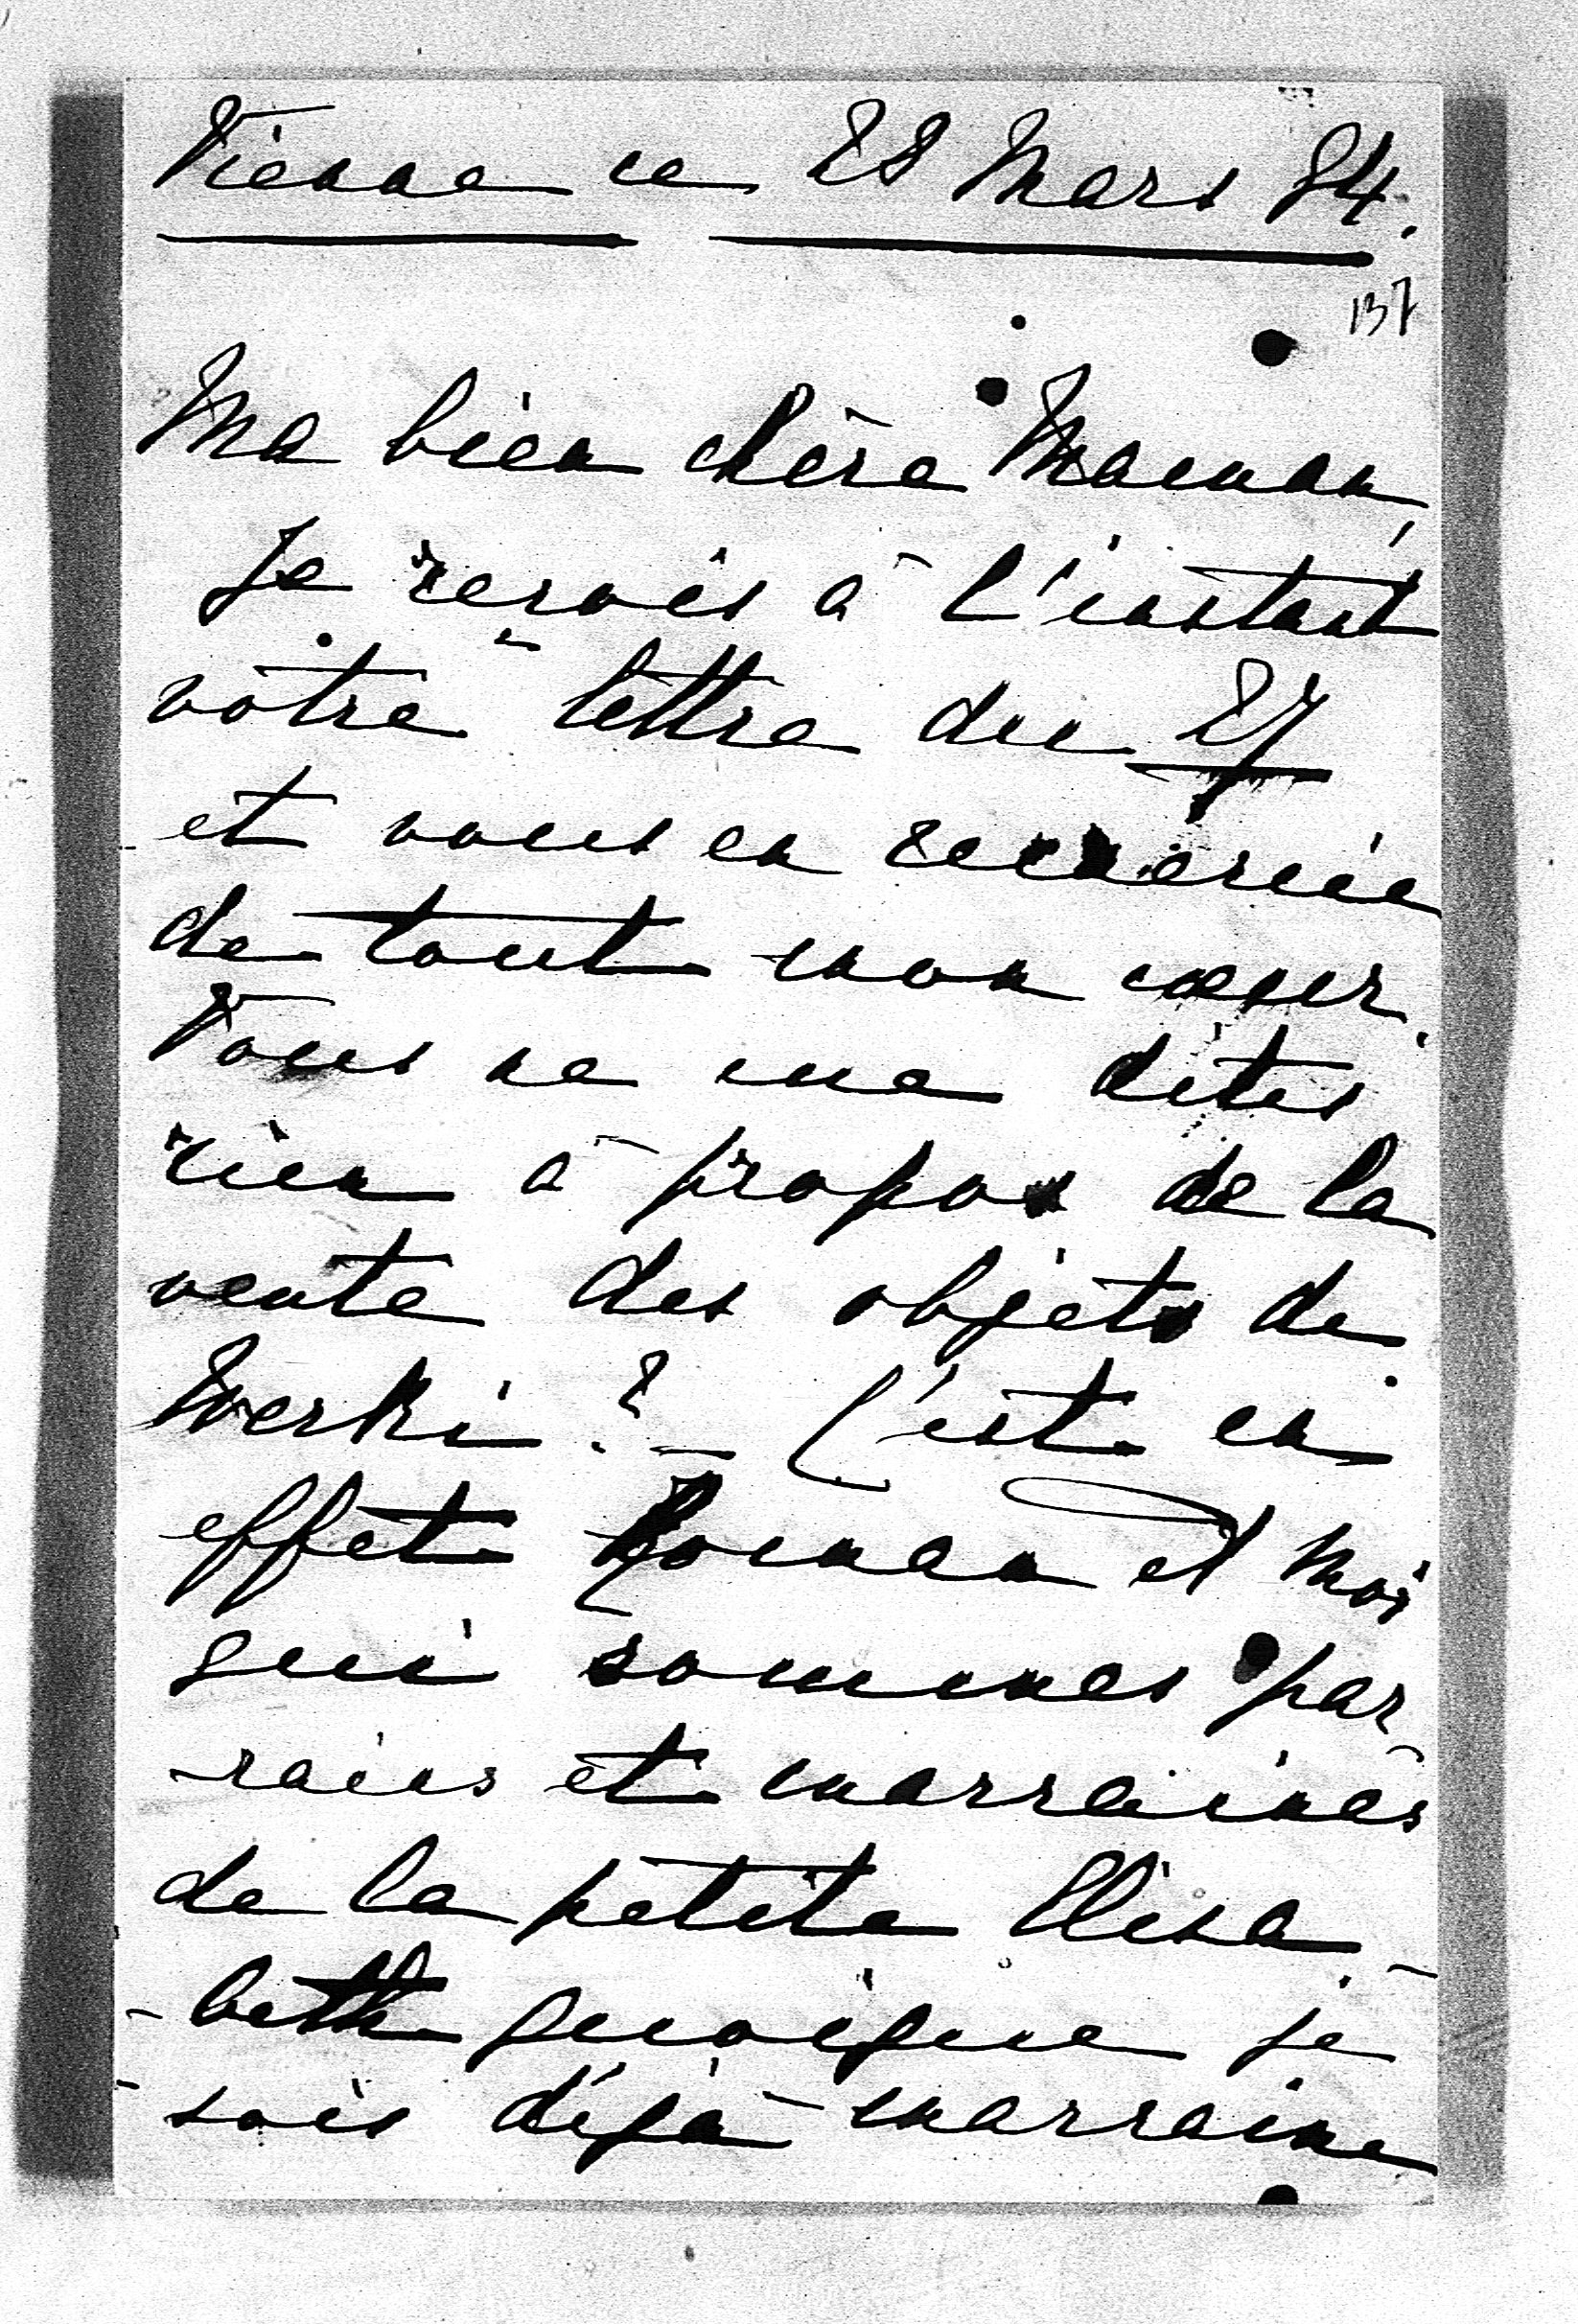 Vienne ce 28 Mars 84.
137
Ma bien chère Maman,
Je reçois à l'instant
votre lettre du 27
et vous en remercie
de tout mon cœur.
Vous ne me dites
rien à propos de la
vente des objets de
Werki? – C'est en
effet Roman et moi
qui sommes par
-rains et marraines
de la petite Elisa-
-beth quoique je
sois déjà marraine